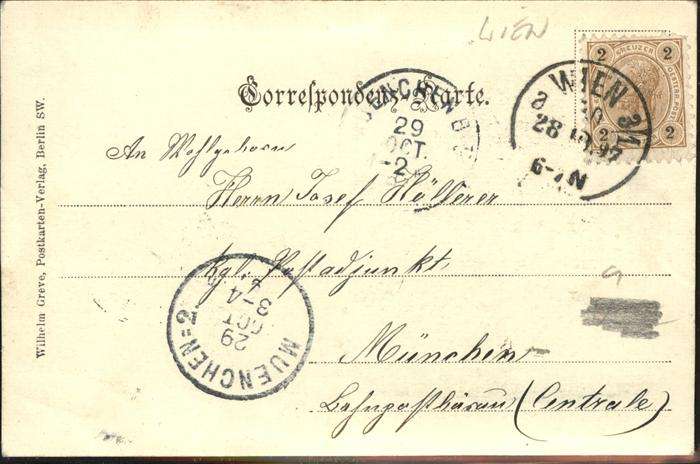 WIEN
2 KREUZER 2
2 2
Correspondenz-Karte.
WIEN
8
28 10 97
6-7 N
29
OCT.
2
An Wohlgeboren
Herrn Josef Höllerer
Kgl. Postadjunkt
München
Bahnpostbureau (Centrale)
MUENCHEN=2.
29
OCT
3-4
Wilhelm Greve, Postkarten-Verlag, Berlin SW.